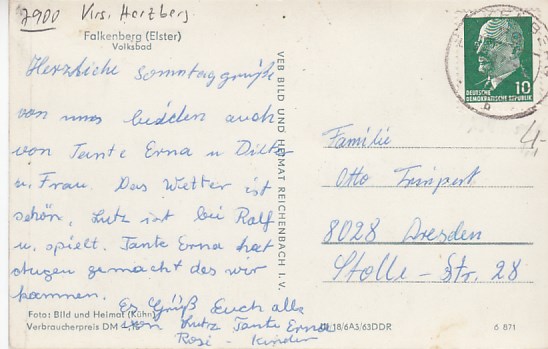 7900 Krs. Herzberg
Falkenberg (Elster)
Volksbad
Herzliche Sonntaggrüße
von uns beiden auch
von Tante Erna u
u. Frau. Das Wetter ist
schön, Lutz ist bei Ralf
u. spielt. Tante Erna hat
gemacht das wir
kommen.
Es Grüß Euch alle
Lutz Tante Erna
Rosi - Kinder
Foto: Bild und Heimat (Kühn)
Verbraucherpreis DM
VEB BILD UND HEIMAT REICHENBACH I. V.
DEUTSCHE
DEMOKRATISCHE REPUBLIK
10
4,-
Familie
Otto
8028 Dresden
Stolle-Str. 28
18/6A3/63DDR
6 871